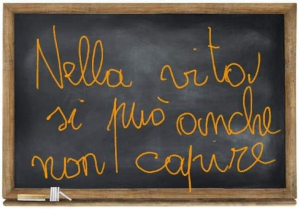 Nella vita
si può anche
non capire